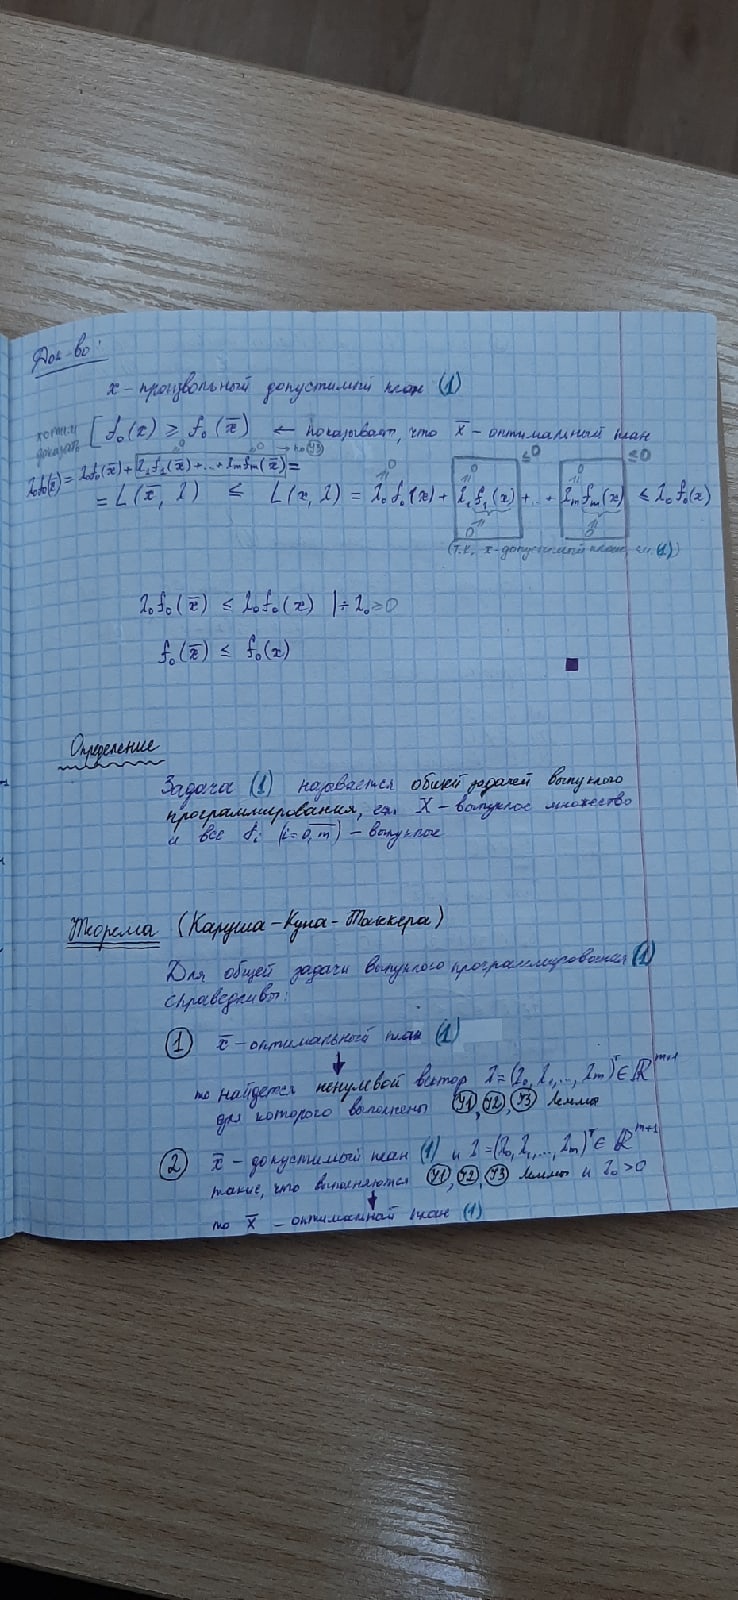 Док-во:
x - произвольный допустимый план (1)
хотим доказать [ f₀(x) ≥ f₀(x̄) ← показывает, что x̄ - оптимальный план
λ₀f₀(x̄) = λ₀f₀(x̄) + λ₁f₁(x̄) + ... + λₘfₘ(x̄) =
= L(x̄, λ) ≤ L(x, λ) = λ₀f₀(x) + λ₁f₁(x) + ... + λₘfₘ(x) ≤ λ₀f₀(x)
(т.к. x - допустимый план (1))
λ₀f₀(x̄) ≤ λ₀f₀(x) | ÷ λ₀ > 0
f₀(x̄) ≤ f₀(x)
Определение
Задача (1) называется общей задачей выпуклого
программирования, если X - выпуклое множество
и все fᵢ (i = 0,m) - выпуклые
Теорема (Каруша-Куна-Таккера)
Для общей задачи выпуклого программирования (1)
справедливы:
① x̄ - оптимальный план (1)
↓
то найдется ненулевой вектор λ = (λ₀, λ₁, ..., λₘ)ᵀ ∈ ℝᵐ⁺¹
для которого выполнены У1, У2, У3 Леммы
② x̄ - допустимый план (1) и λ = (λ₀, λ₁, ..., λₘ)ᵀ ∈ ℝᵐ⁺¹
такие, что выполняются У1, У2, У3 Леммы и λ₀ > 0
↓
то x̄ - оптимальный план (1)